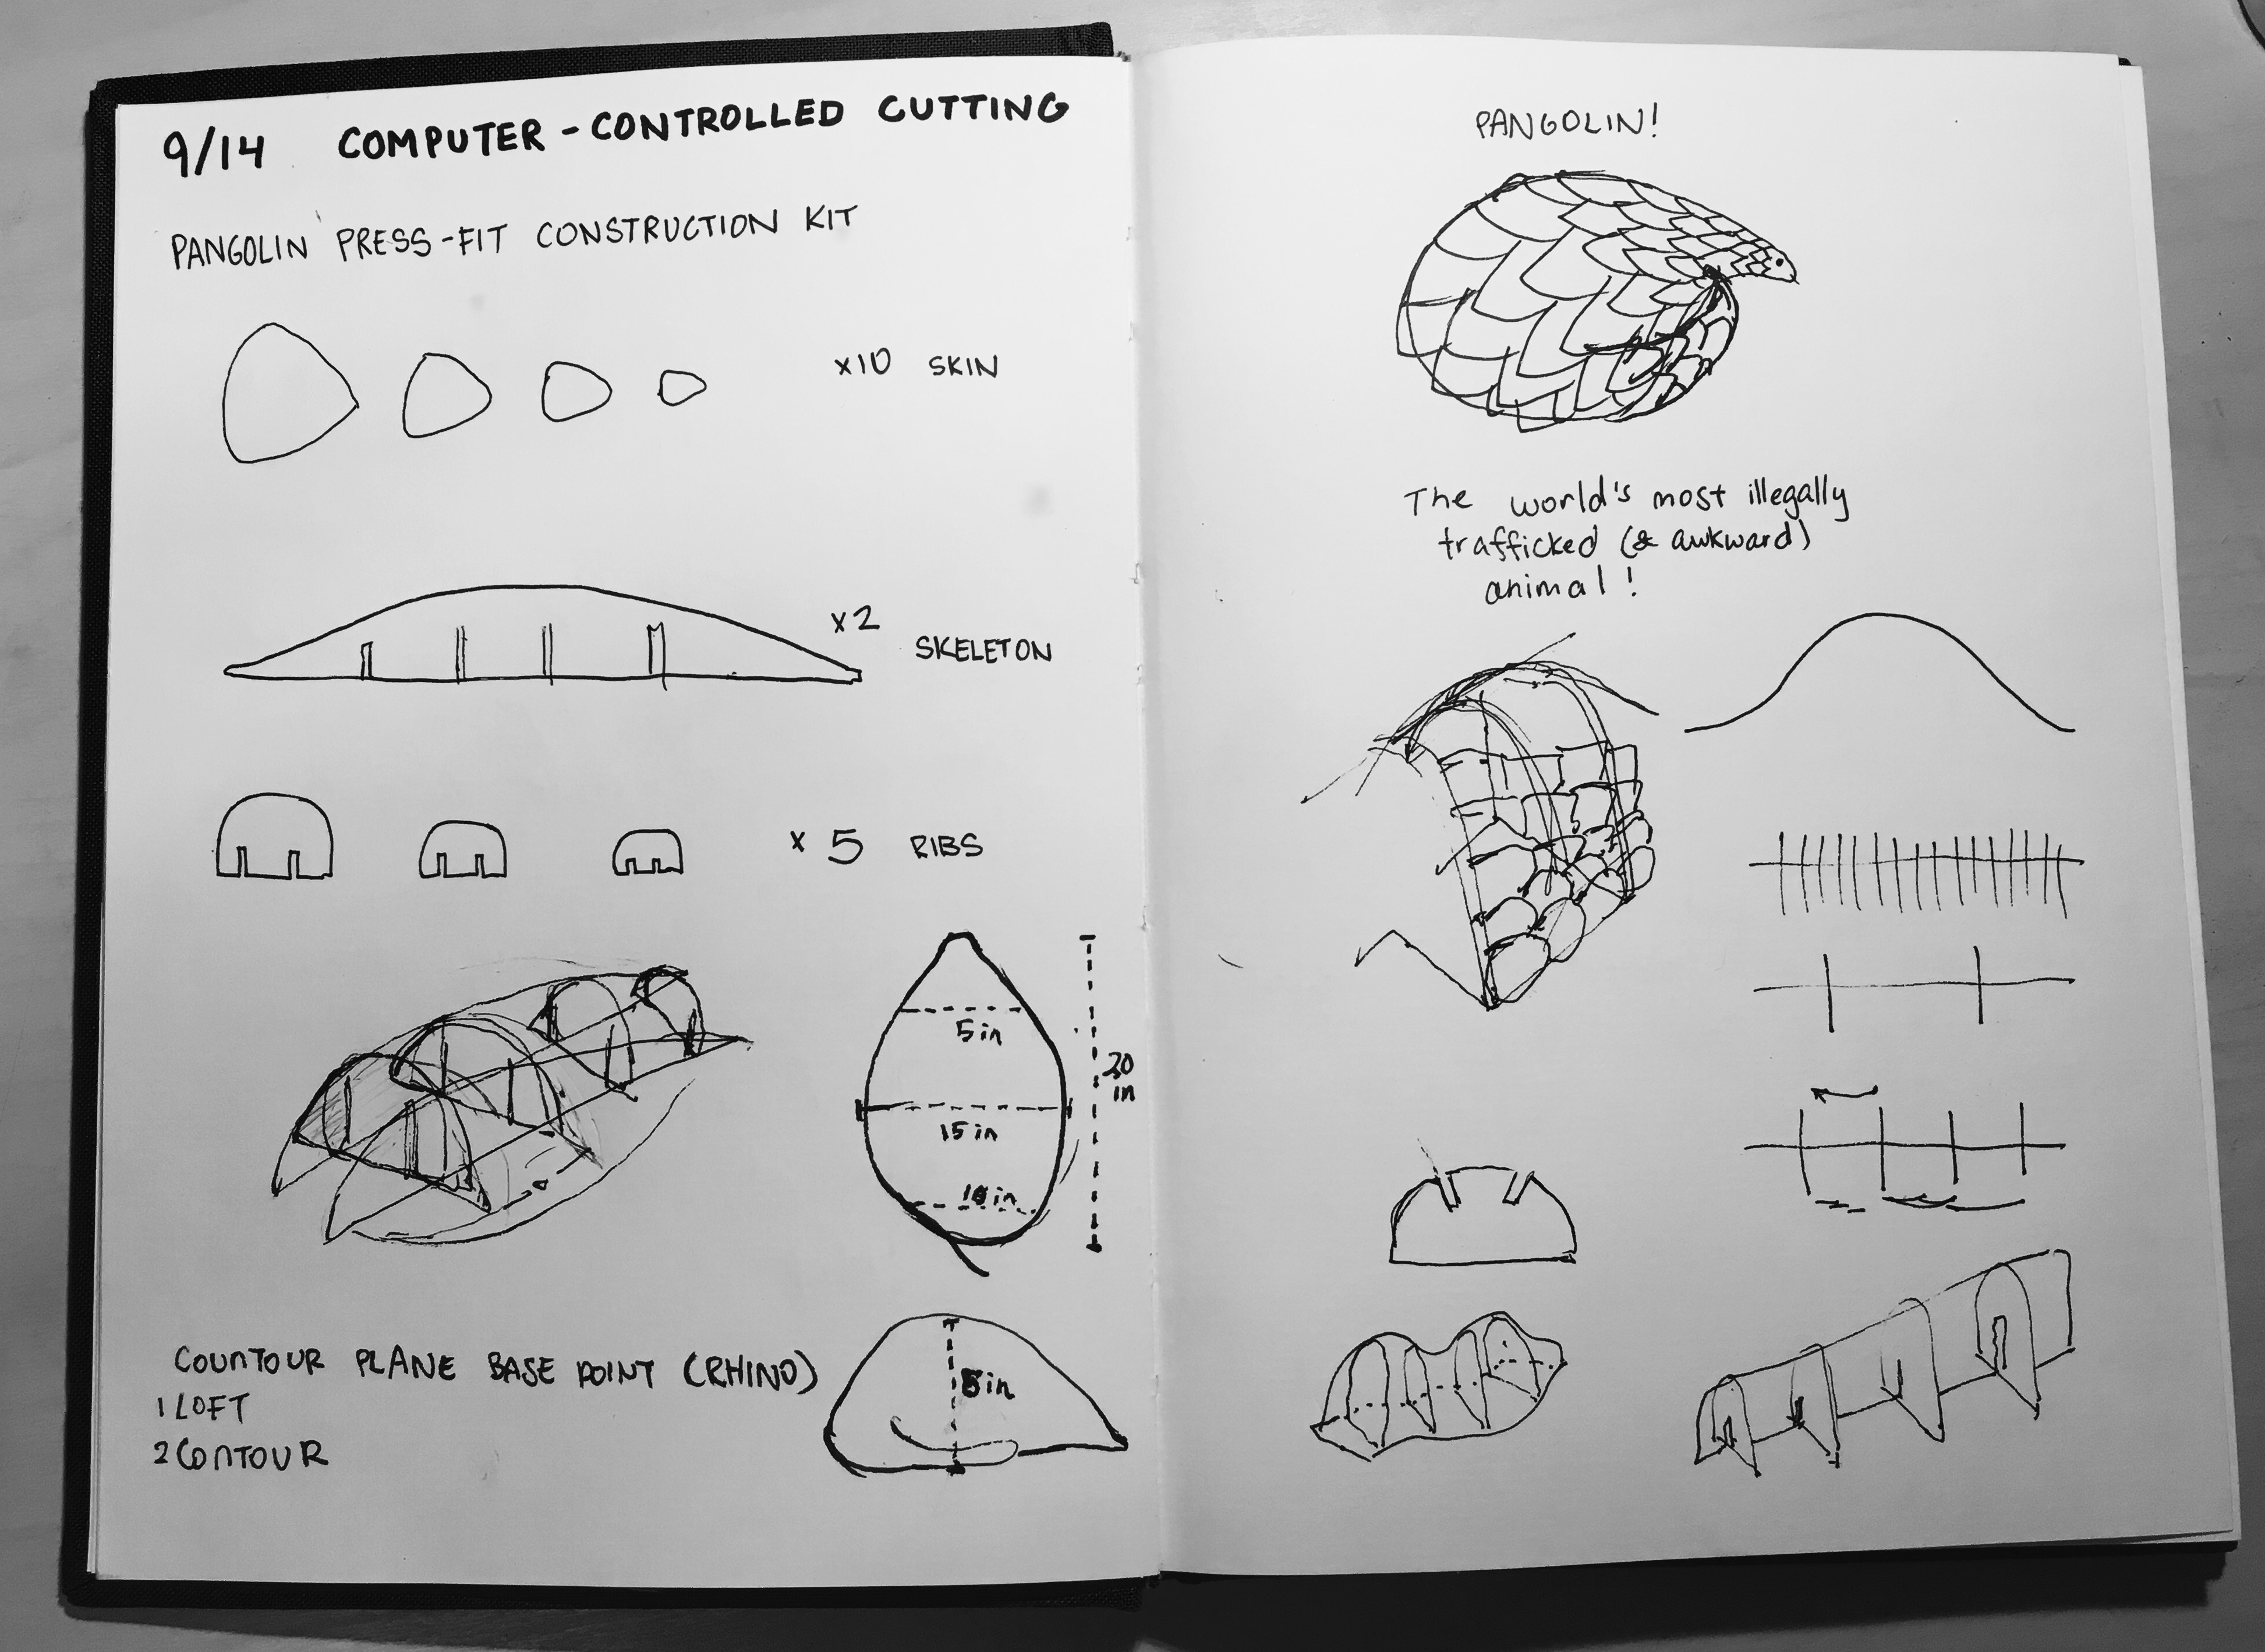 9/14 COMPUTER-CONTROLLED CUTTING
PANGOLIN PRESS-FIT CONSTRUCTION KIT
x10 SKIN
x2
SKELETON
x 5 RIBS
5in
15in
20
in
COUNTOUR PLANE BASE POINT (RHINO)
1 LOFT
2 CONTOUR
PANGOLIN!
The world's most illegally
trafficked (& awkward)
animal!